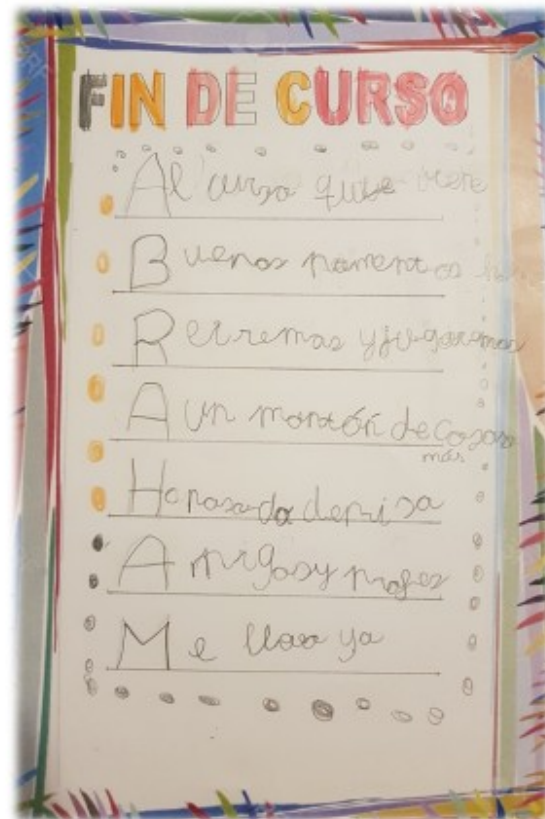 FIN DE CURSO
Al curso que viene
Buenos momentos
Reiremos y jugaremos
A un montón de cosas
más
Ha pasado deprisa
Amigos y profes
Me llevo ya